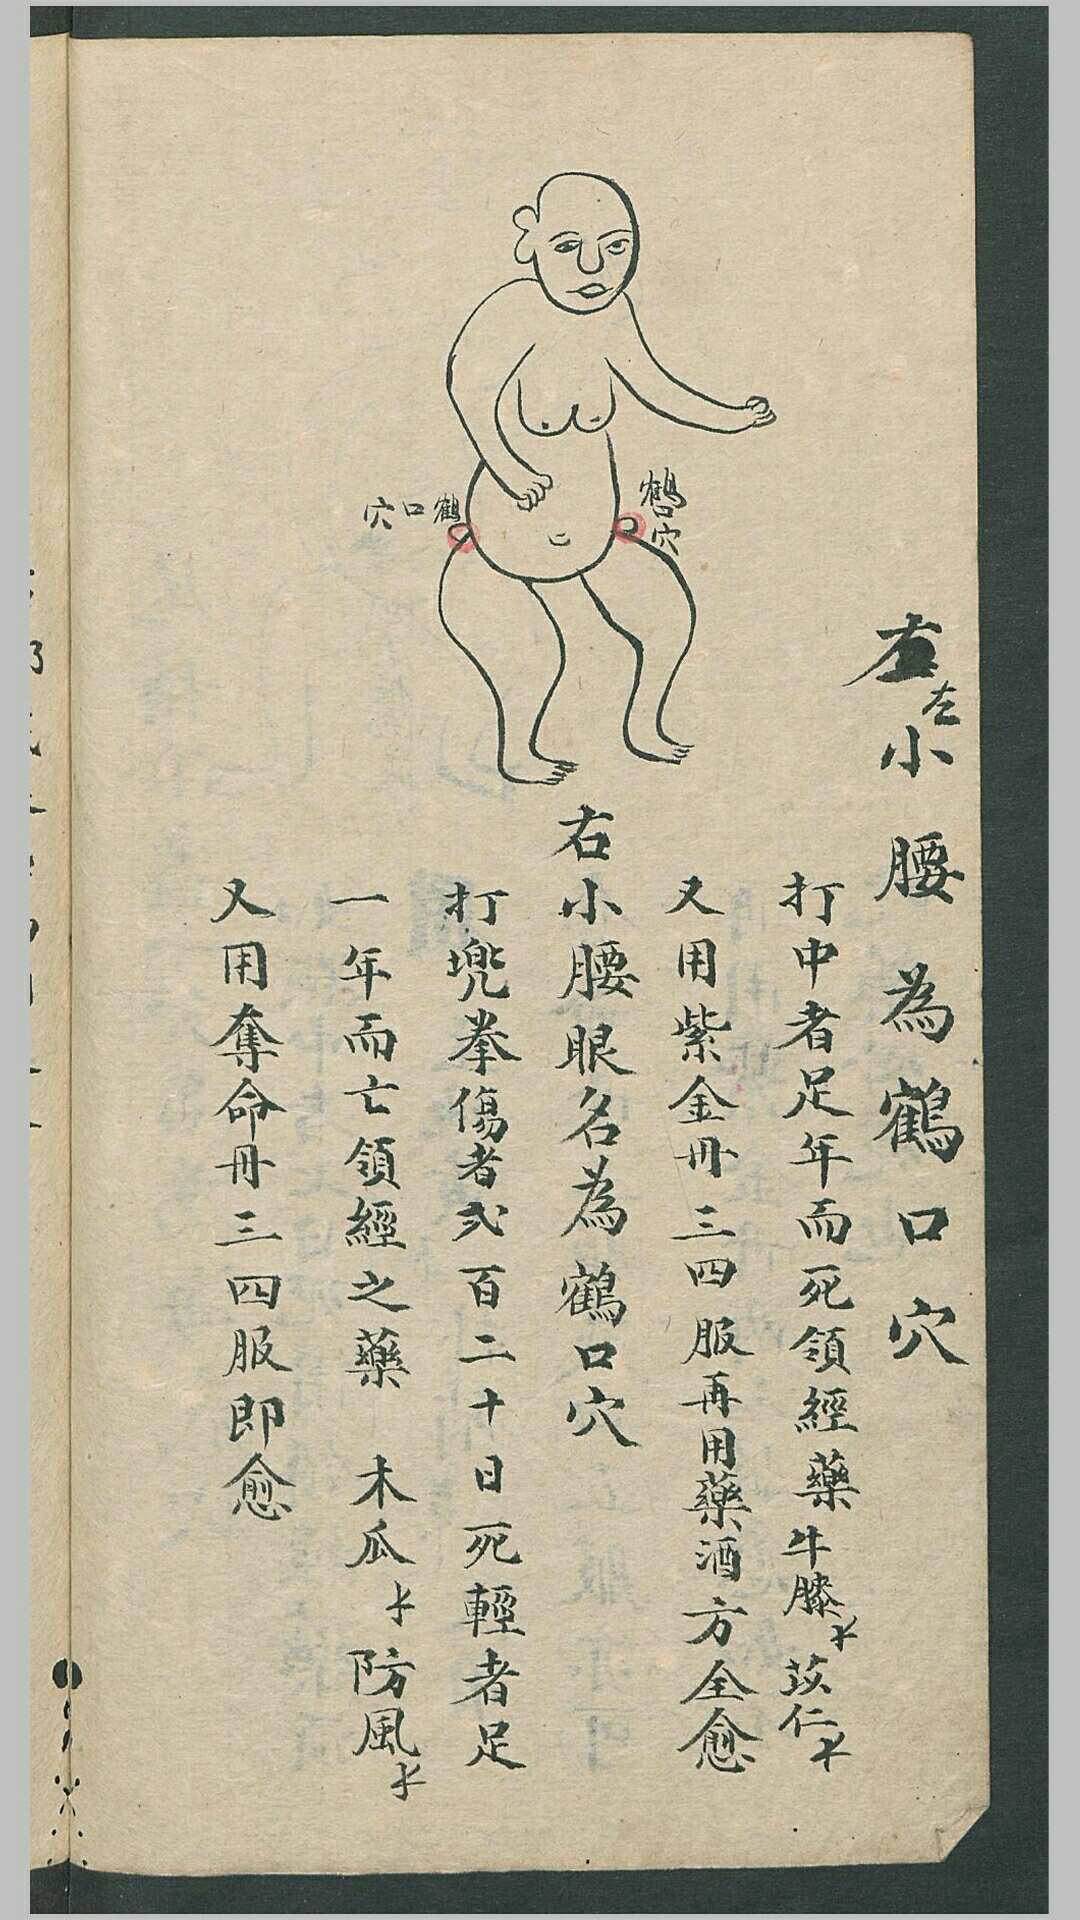 鶴口穴
鶴口穴
左小腰為鶴口穴
打中者足年而死領經藥牛膝苡仁
又用紫金丹三四服再用藥酒方全愈
右小腰眼名為鶴口穴
打兠拳傷者弍百二十日死輕者足
一年而亡領經之藥 木瓜 防風
又用奪命丹三四服即愈